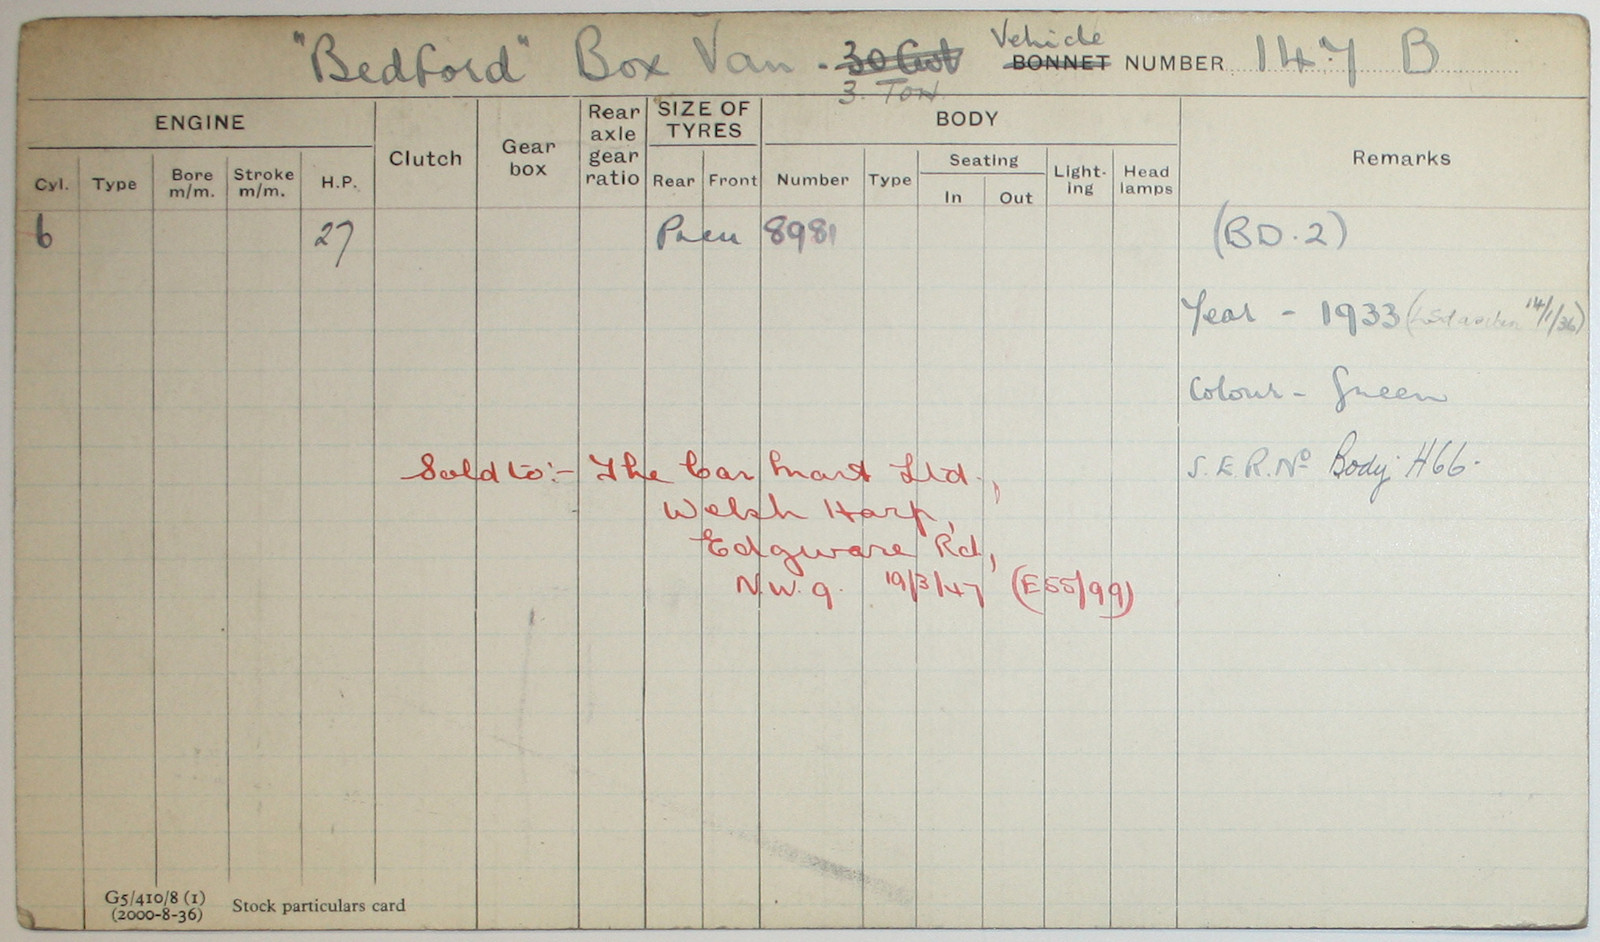 "Bedford" Box Van . 30 Cwt Vehicle BONNET NUMBER 147 B
3. Ton
ENGINE Clutch Gear box Rear axle gear ratio SIZE OF TYRES BODY Remarks
Cyl. Type Bore m/m. Stroke m/m. H.P. Rear Front Number Type Seating In Out Light-ing Head lamps
6 27 Pneu 8981 (BD.2)
Year - 1933 ( 14/1/36)
Colour - Green
Sold to:- The Car Mart Ltd., S.E.R.No Body H66.
Welsh Harp,
Edgware Rd,
N.W.9. 19/3/47 (E55/99)
G5/410/8 (1)
(2000-8-36) Stock particulars card